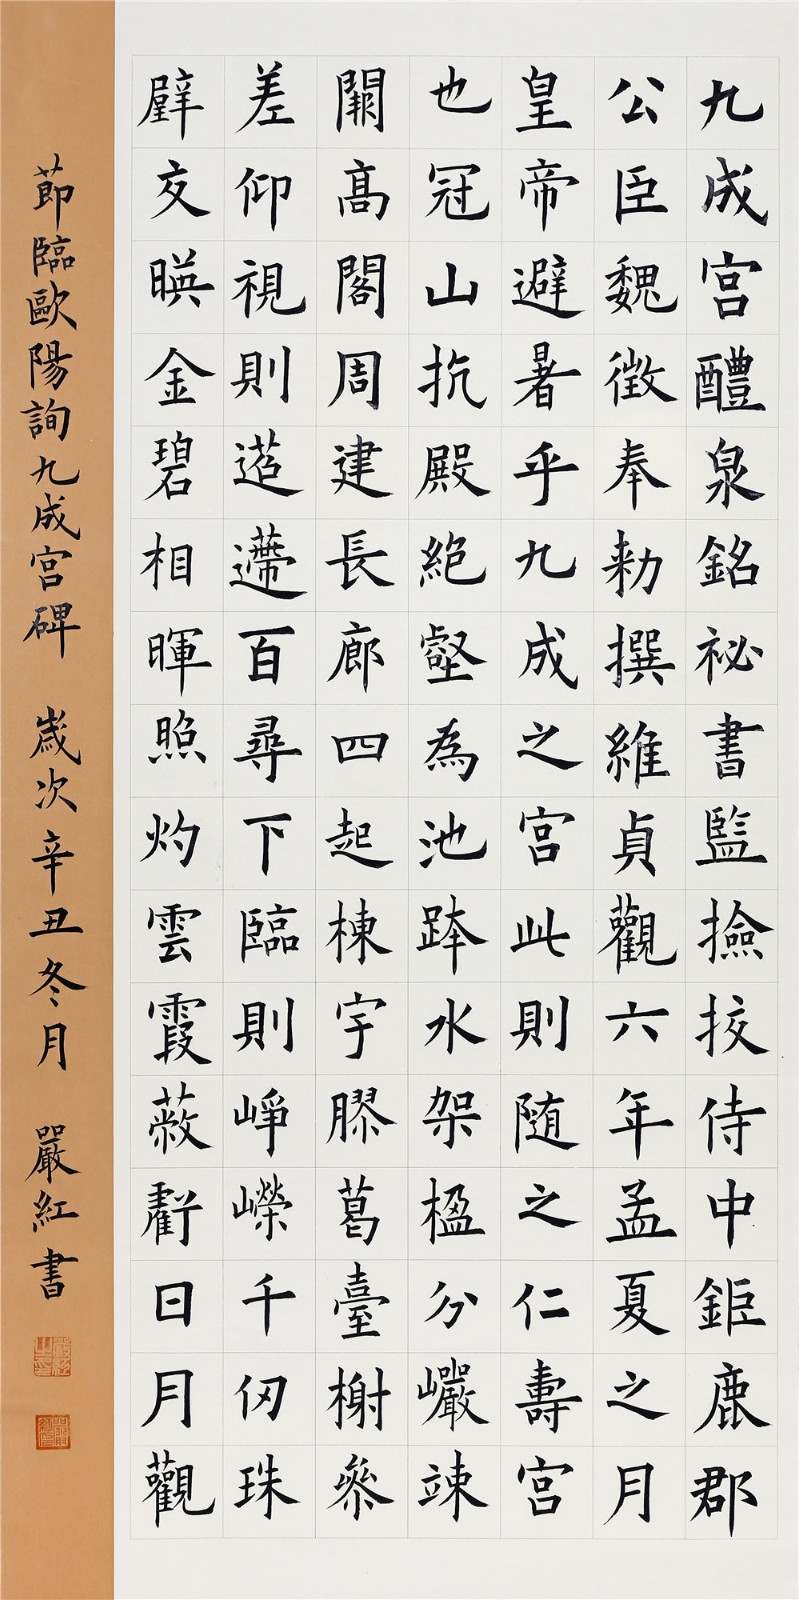 九成宮醴泉銘祕書監撿挍侍中鉅鹿郡
公臣魏徵奉勑撰維貞觀六年孟夏之月
皇帝避暑乎九成之宮此則随之仁壽宮
也冠山抗殿絕壑為池跨水架楹分巖竦
闕高閣周建長廊四起棟宇膠葛臺榭參
差仰視則迢遰百尋下臨則崢嶸千仞珠
壁交暎金碧相暉照灼雲霞蔽虧日月觀
節臨歐陽詢九成宮碑 歲次辛丑冬月 嚴紅書